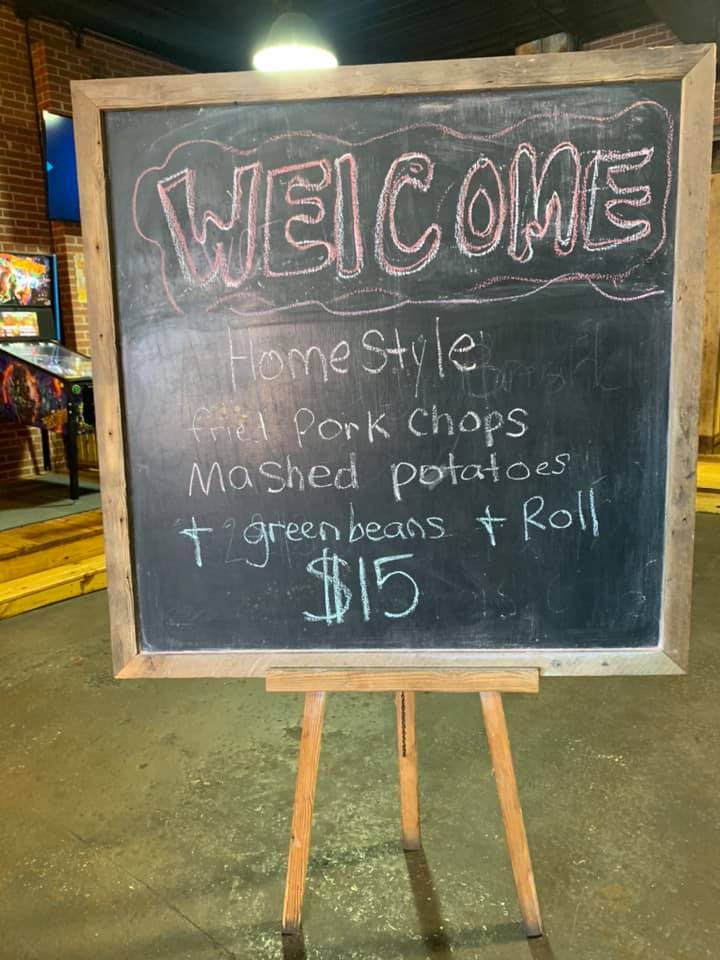 WELCOME
HomeStyle
fried Pork Chops
Mashed potatoes
+ greenbeans + Roll
$15